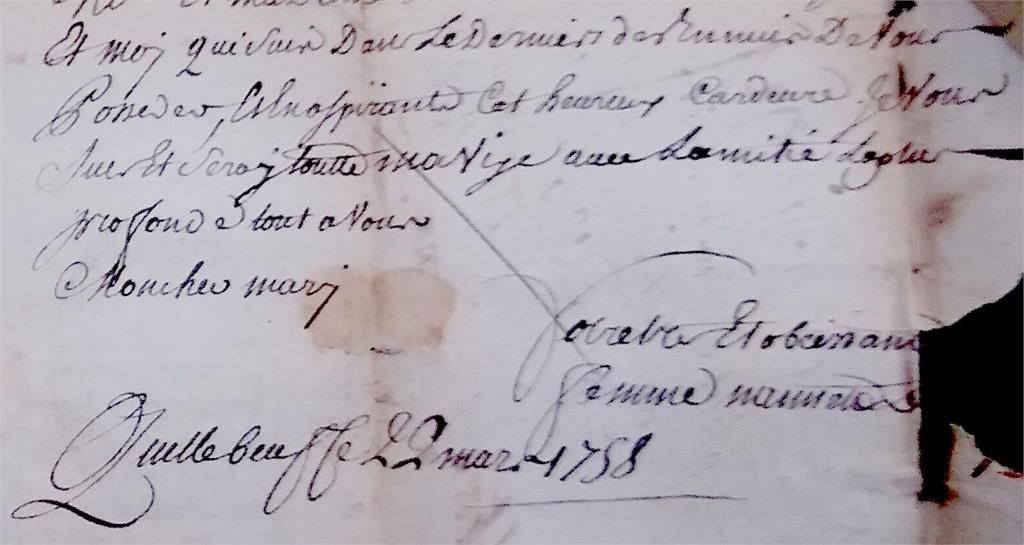 Et moy qui suis Dans Le Dernier des Ennuis De vous
Posseder, Et En aspirante Cet heureux
Suis Et Seray toutte ma Vige avec Lamitié Laplus
proffonde tout a Vous
Mon cher mary
Votre tres Et obeissante
femme nannette
Quillebeuffe 22 mars 1758